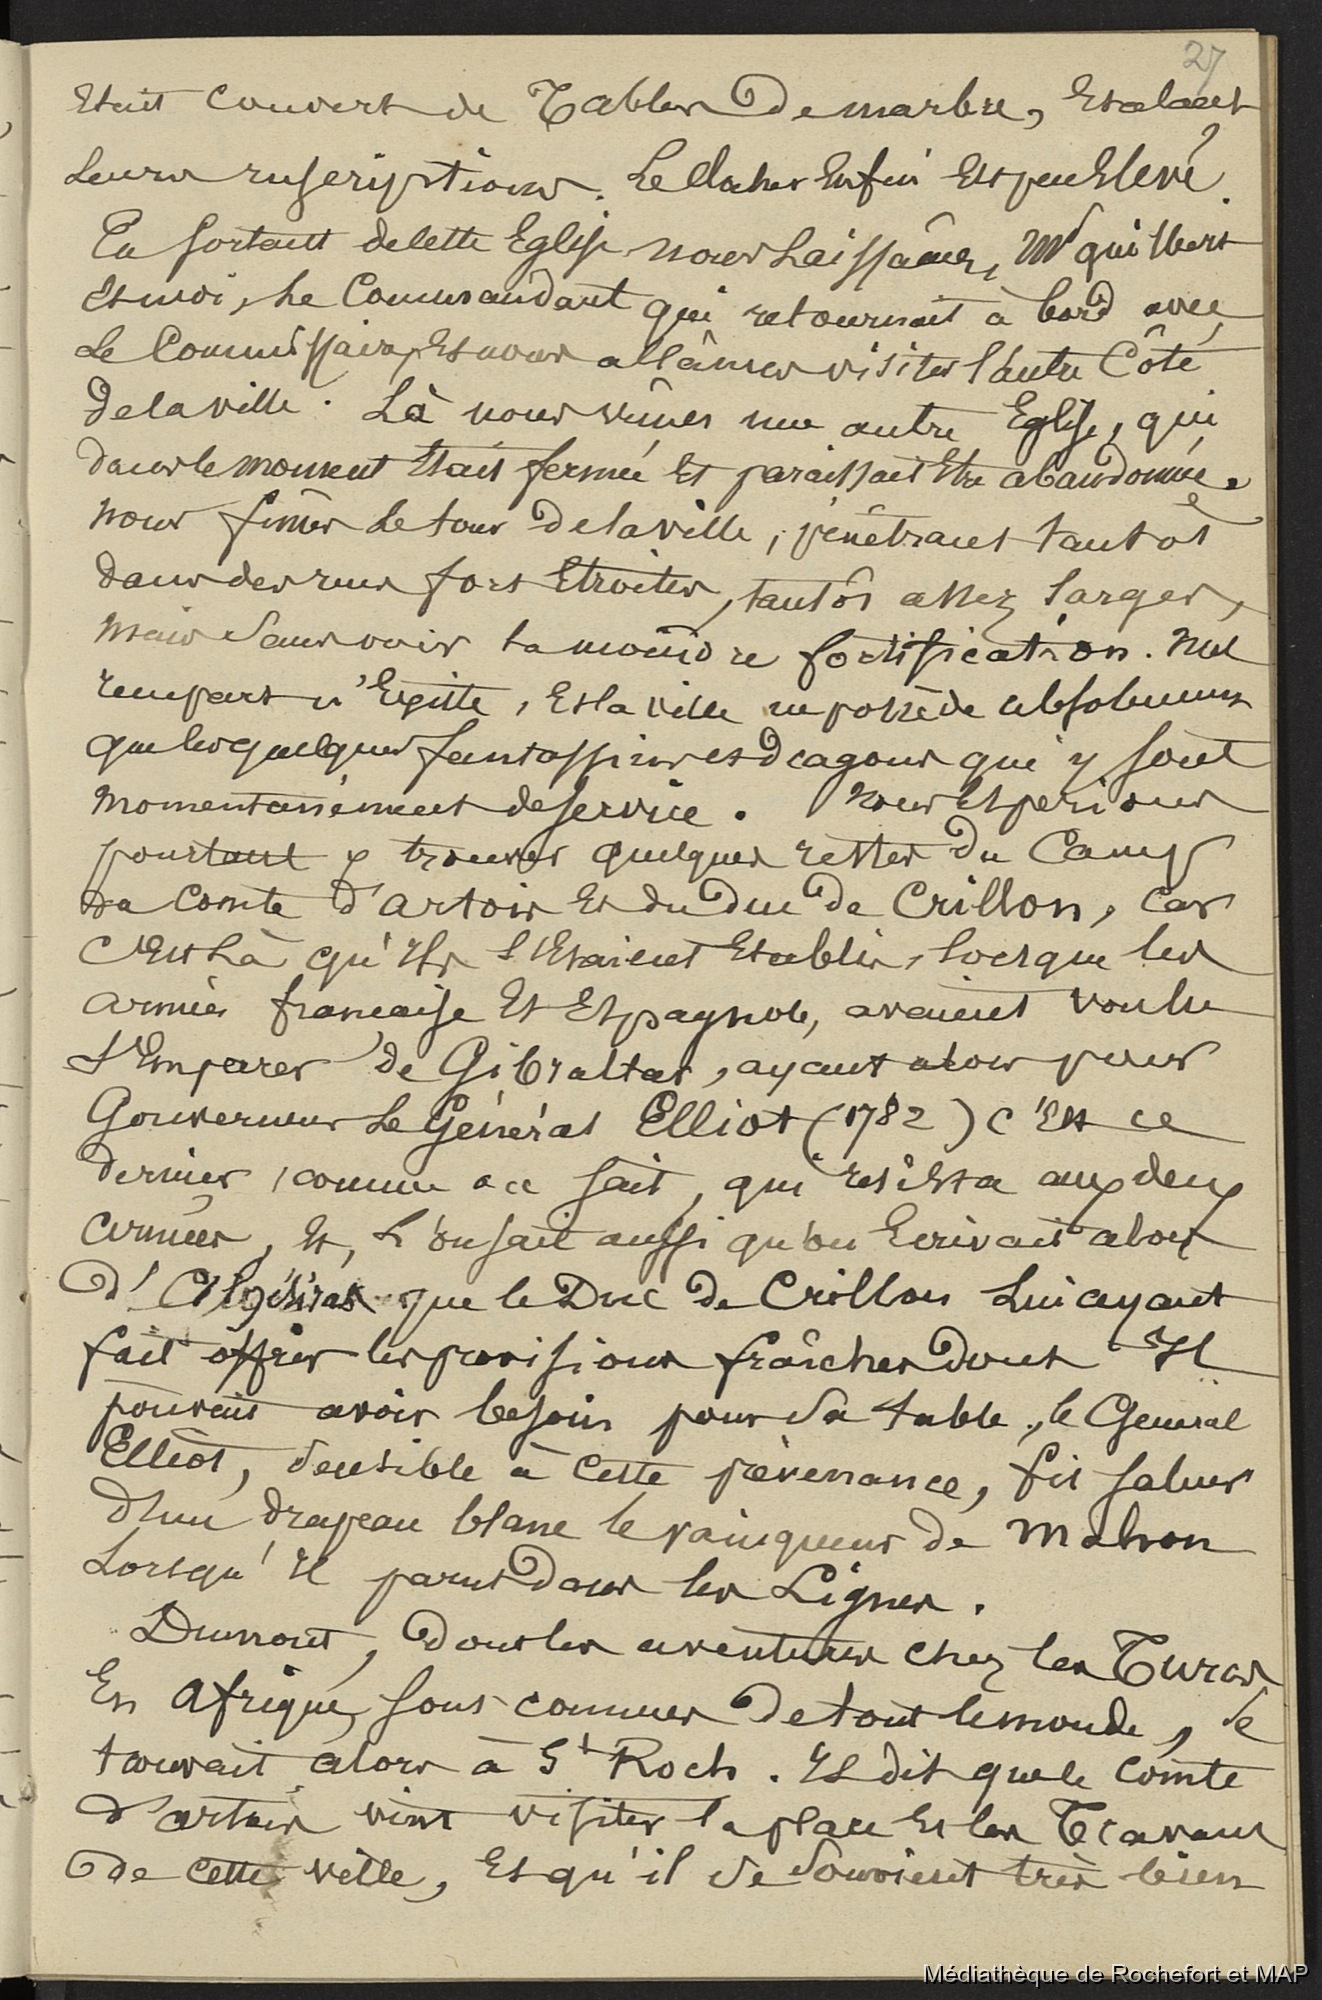 27
Etait couvert de Tables De marbre, Etalant
Leurs inscriptions. Le clocher Enfin Est peu Elevé.
En sortant de cette Eglise nous Laissâmes, Mr Guilbert
Et moi, Le Commandant qui retournait à bord avec
Le Commissaire, Et nous allâmes visiter l'autre Côté
De la ville. Là nous vîmes une autre Eglise, qui
dans le moment Etait fermée Et paraissait Etre abandonnée.
Nous fîmes Le tour De la ville, pénétrant tantôt
dans des rues fort Etroites, tantôt assez larges,
mais sans voir La moindre fortification. Nul
rempart n'Existe, Et la ville ne possède absolument
que les quelques fantassins et Dragons qui y sont
momentanément de service. Nous Esperions
pourtant y trouver quelques restes Du Camp
Du Comte d'artois Et du Duc De Crillon, Car
C'est Là qu'ils s'Etaient Etablis, lorsque les
armées française Et Espagnole, avaient voulu
s'Emparer de Gibraltar, ayant alors pour
Gouverneur Le Général Elliot (1782) c'Est ce
dernier, comme on sait, qui résista aux deux
armées, Et, L'on sait aussi qu'on Ecrivait alors
D'Algésiras que le Duc De Crillon Lui ayant
fait offrir les provisions fraîches Dont Il
pouvait avoir besoin pour sa table, le General
Elliot, sensible à cette prévenance, fit saluer
d'un drapeau blanc le vainqueur de Mahon
Lorsqu'il parut Dans les Lignes.
Dumont, Dont les aventures chez les Turcs
En Afrique, sont connues De tout le monde, se
trouvait alors à St Roch. Il dit que le Comte
D'artois vint visiter la place Et les Travaux
De cette ville, Et qu'il se souvient très bien
Médiathèque de Rochefort et MAP